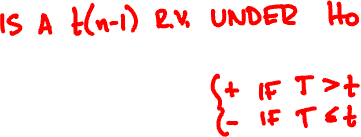 IS A t(n-1) R.V. UNDER Ho
{+ IF T > t
{- IF T ≤ t